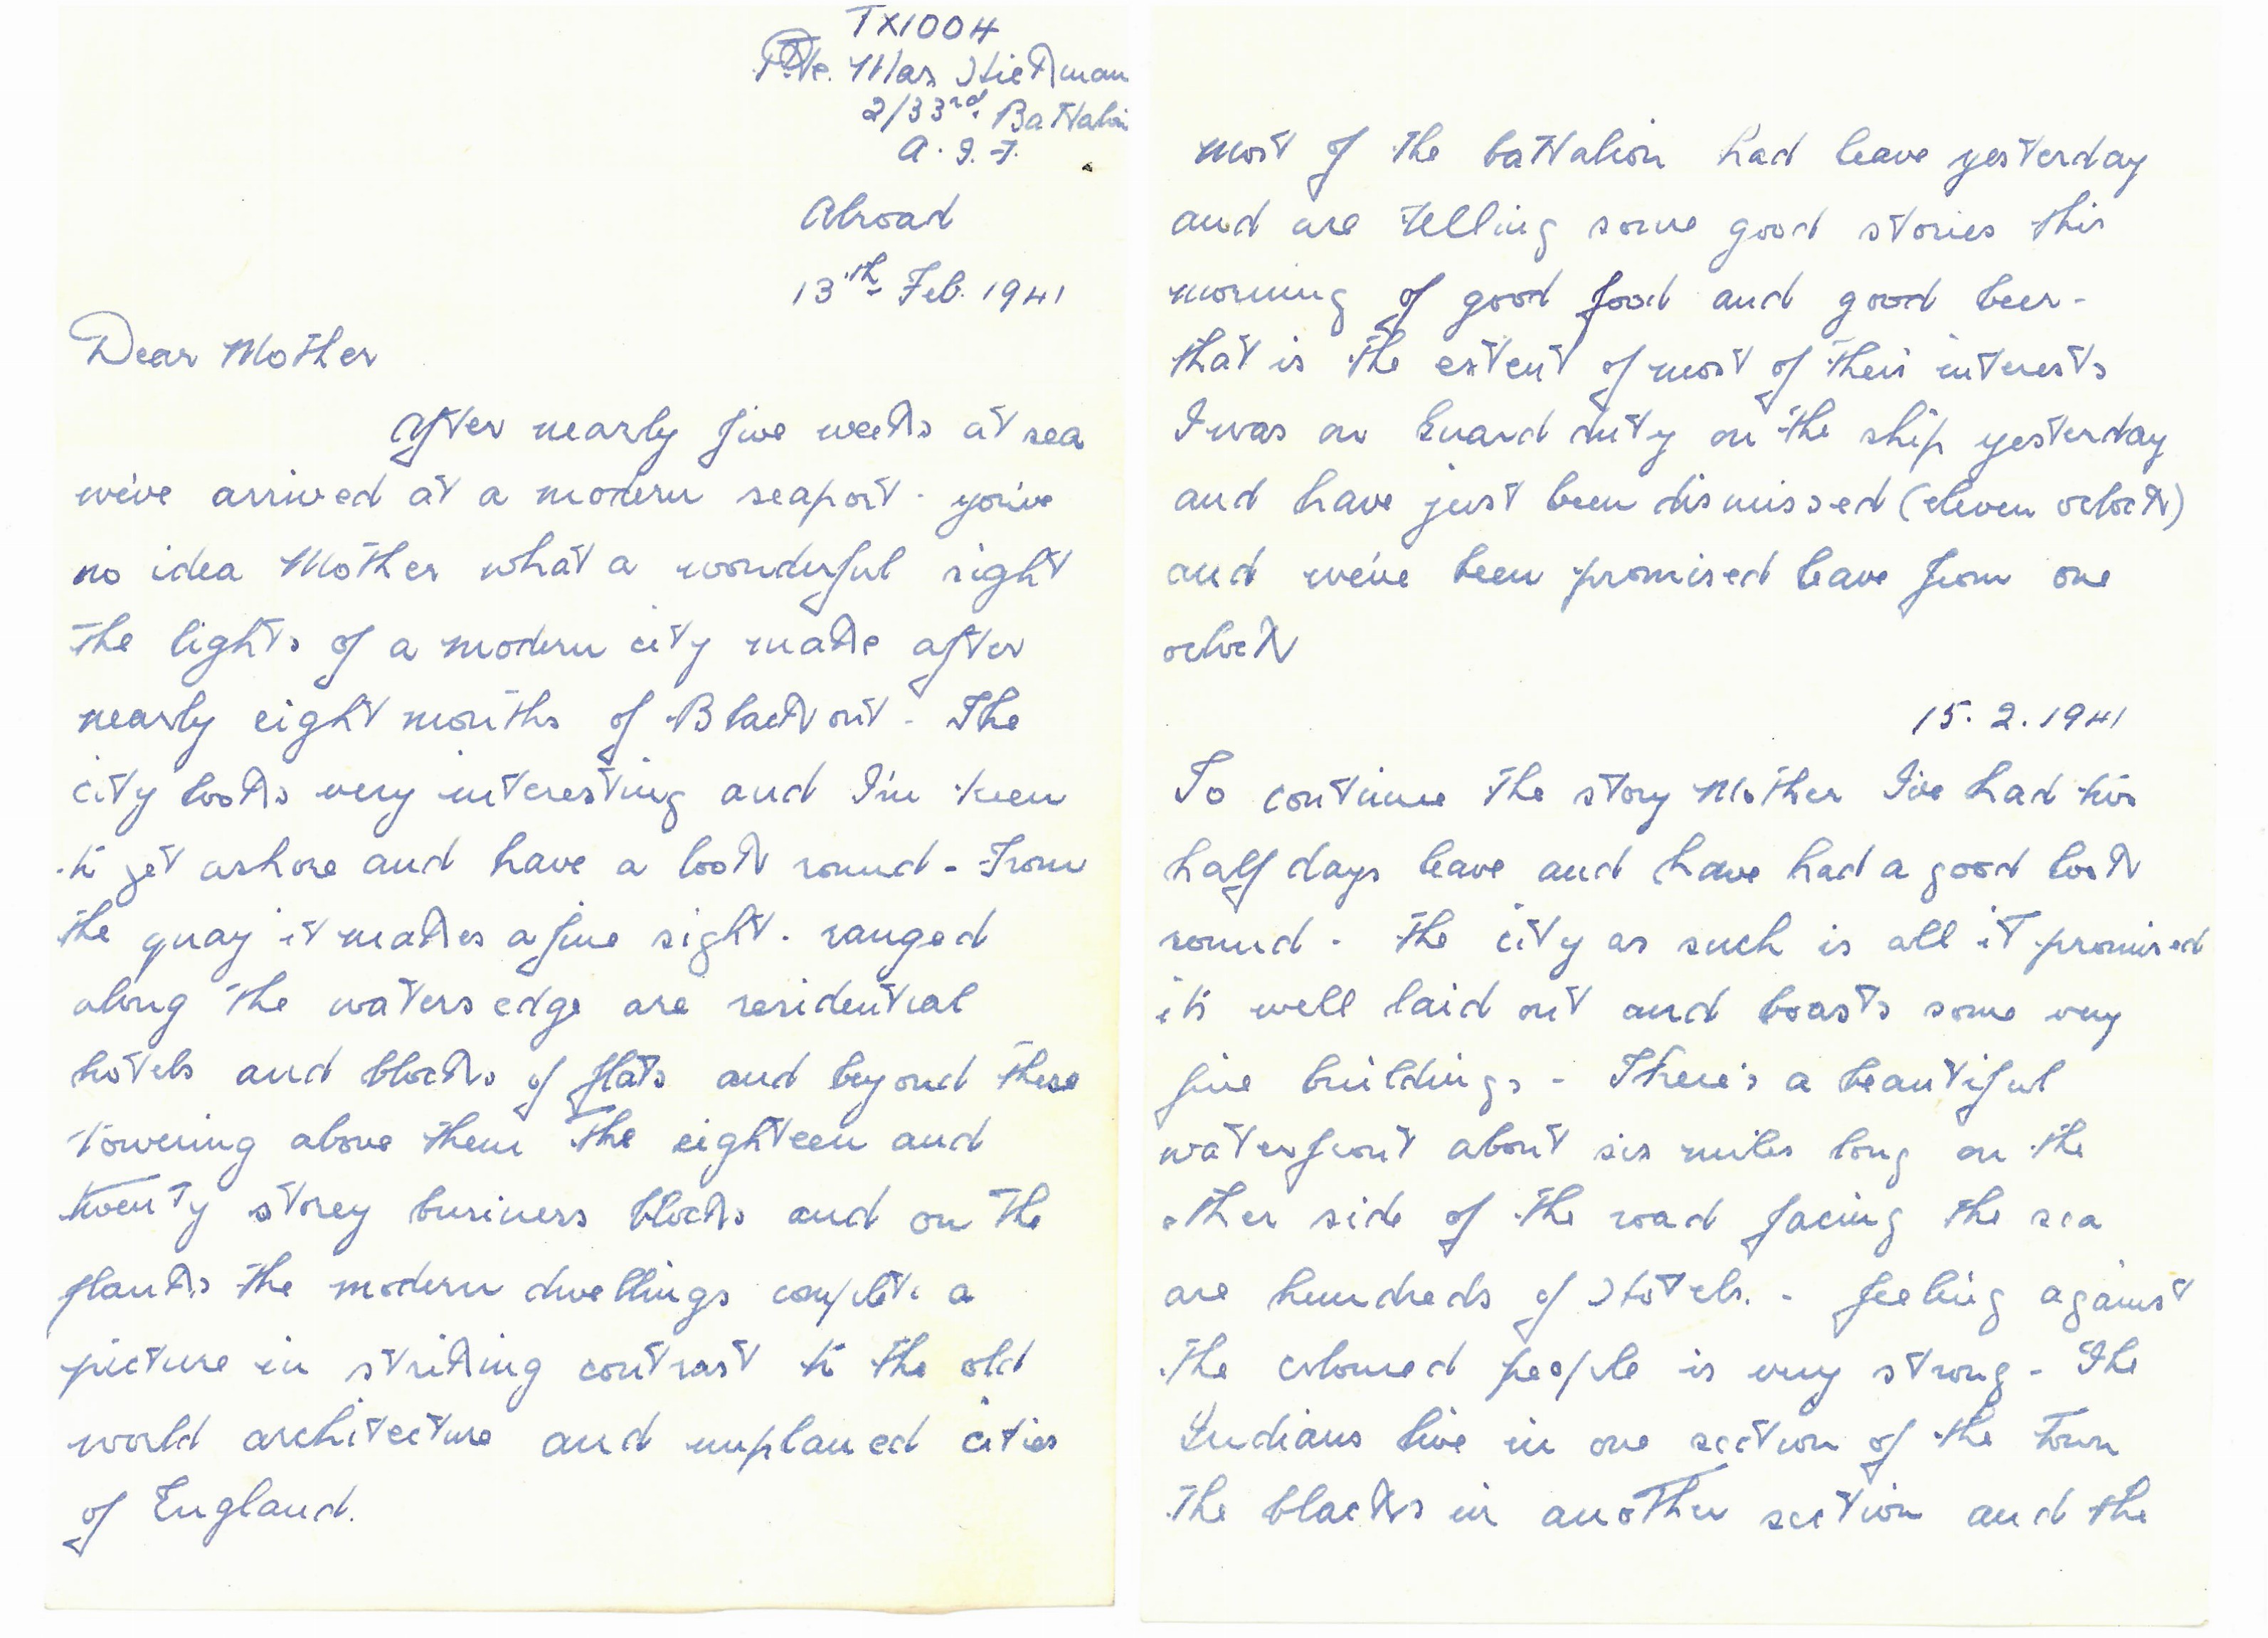 TX1004
Pte. Max Hickman
2/33rd. Battalion
A.I.F.
Abroad
13th Feb. 1941
Dear Mother
After nearly five weeks at sea
we've arrived at a modern seaport. you've
no idea Mother what a wonderful sight
the lights of a modern city make after
nearly eight months of Blackout - The
city looks very interesting and I'm keen
to get ashore and have a look round - From
the quay it makes a fine sight. ranged
along the waters edge are residential
hotels and blocks of flats and beyond these
towering above them the eighteen and
twenty storey business blocks and on the
flanks the modern dwellings complete a
picture in striking contrast to the old
world architecture and unplaned cities
of England.
most of the battalion had leave yesterday
and are telling some good stories this
morning of good food and good beer -
that is the extent of most of their interests
I was on Guard duty on the ship yesterday
and have just been dismissed (eleven oclock)
and we've been promised leave from one
oclock
15.2.1941
To continue the story Mother I've had two
half days leave and have had a good look
round - the city as such is all it promised
its well laid out and boasts some very
fine buildings - There's a beautiful
waterfront about six miles long on the
other side of the road facing the sea
are hundreds of Hotels. - feeling against
the coloured people is very strong - The
Indians live in one section of the town
the blacks in another section and the